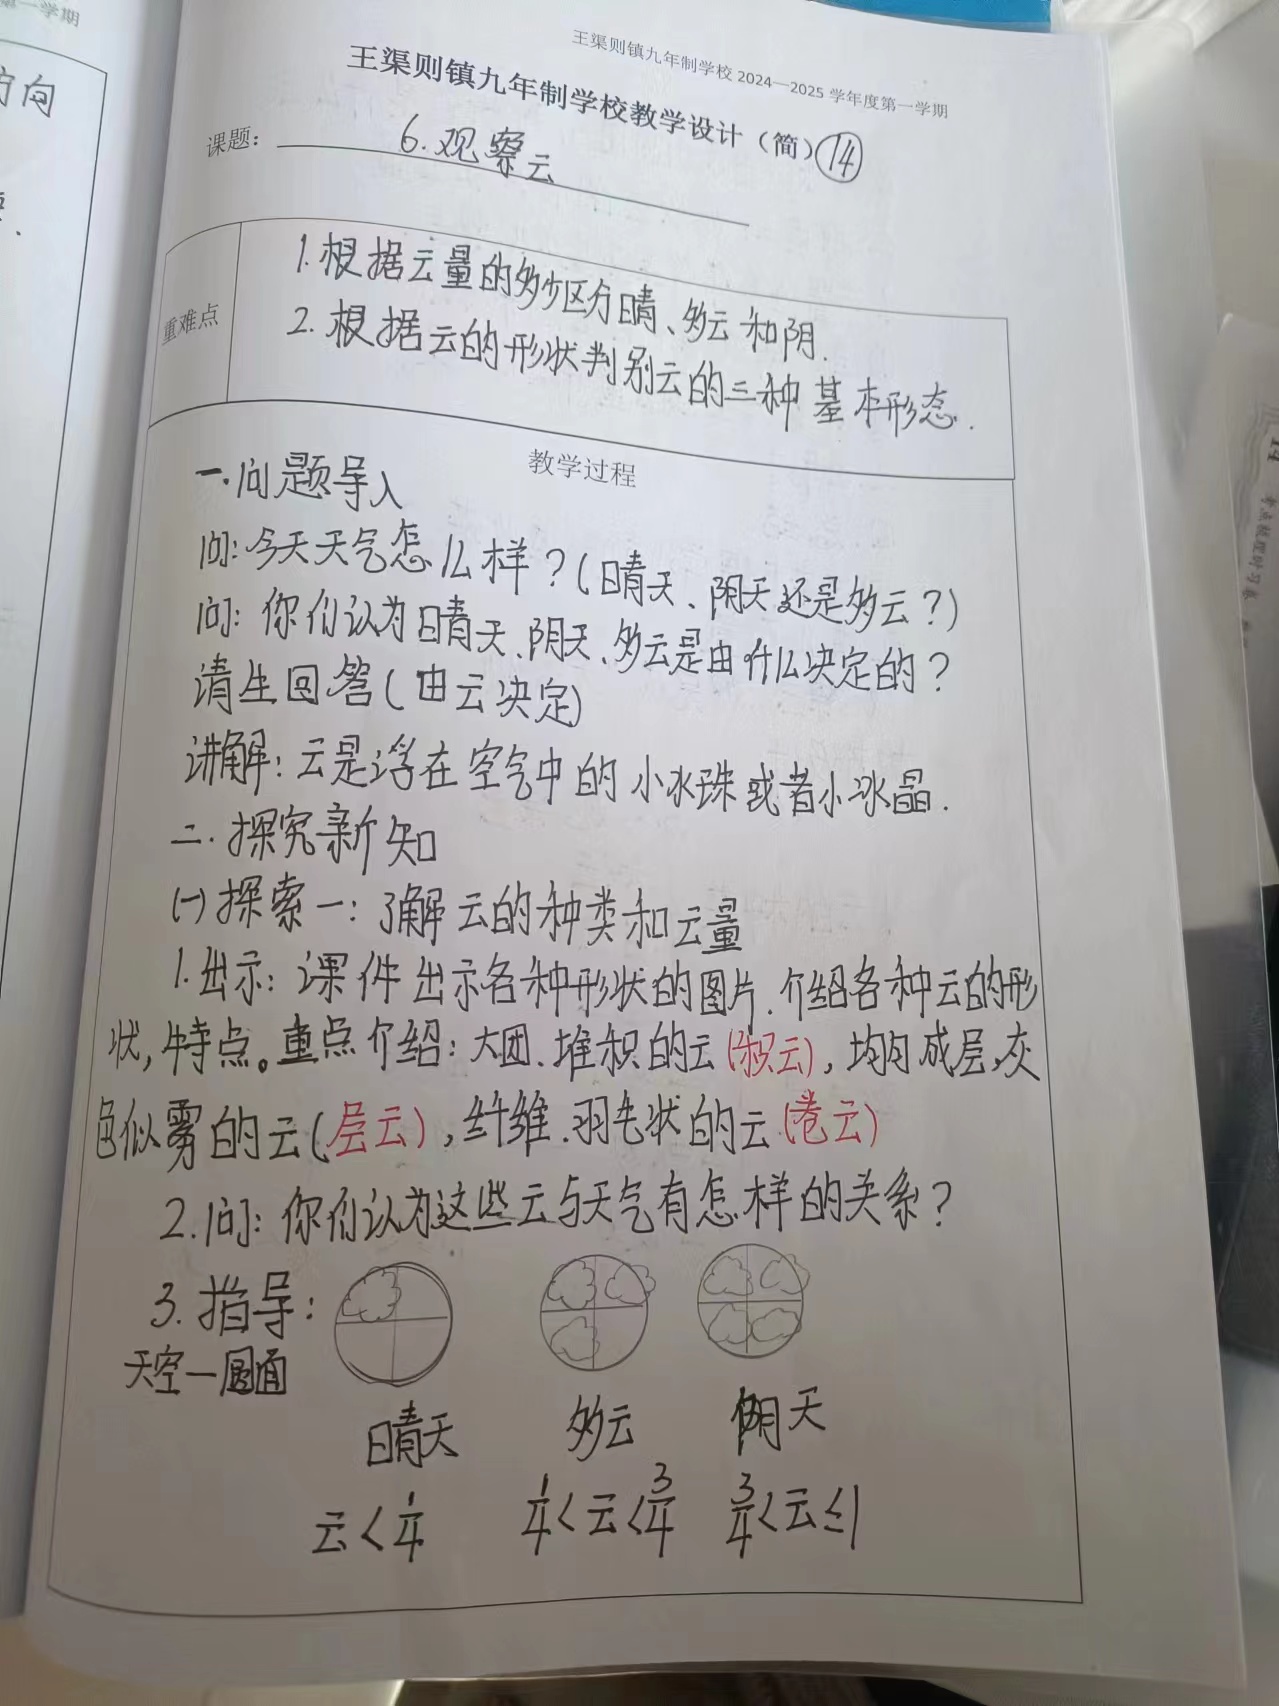 第一学期
的向
王渠则镇九年制学校 2024—2025 学年度第一学期
王渠则镇九年制学校教学设计（简）⑭
课题： 6.观察云
重难点
1.根据云量的多少区分晴、多云和阴.
2.根据云的形状判别云的三种基本形态.
教学过程
一.问题导入
问:今天天气怎么样?(晴天、阴天还是多云?)
问:你们认为晴天、阴天、多云是由什么决定的?
请生回答(由云决定)
讲解:云是浮在空气中的小水珠或者小冰晶.
二.探究新知
(一)探索一:了解云的种类和云量
1.出示:课件出示各种形状的图片.介绍各种云的形
状,特点。重点介绍:大团.堆积的云(积云),均匀成层,灰
色似雾的云(层云),纤维.羽毛状的云(卷云)
2.问:你们认为这些云与天气有怎样的关系?
3.指导:
天空—圆面
晴天 多云 阴天
云<1/4 1/4<云<3/4 3/4<云≤1